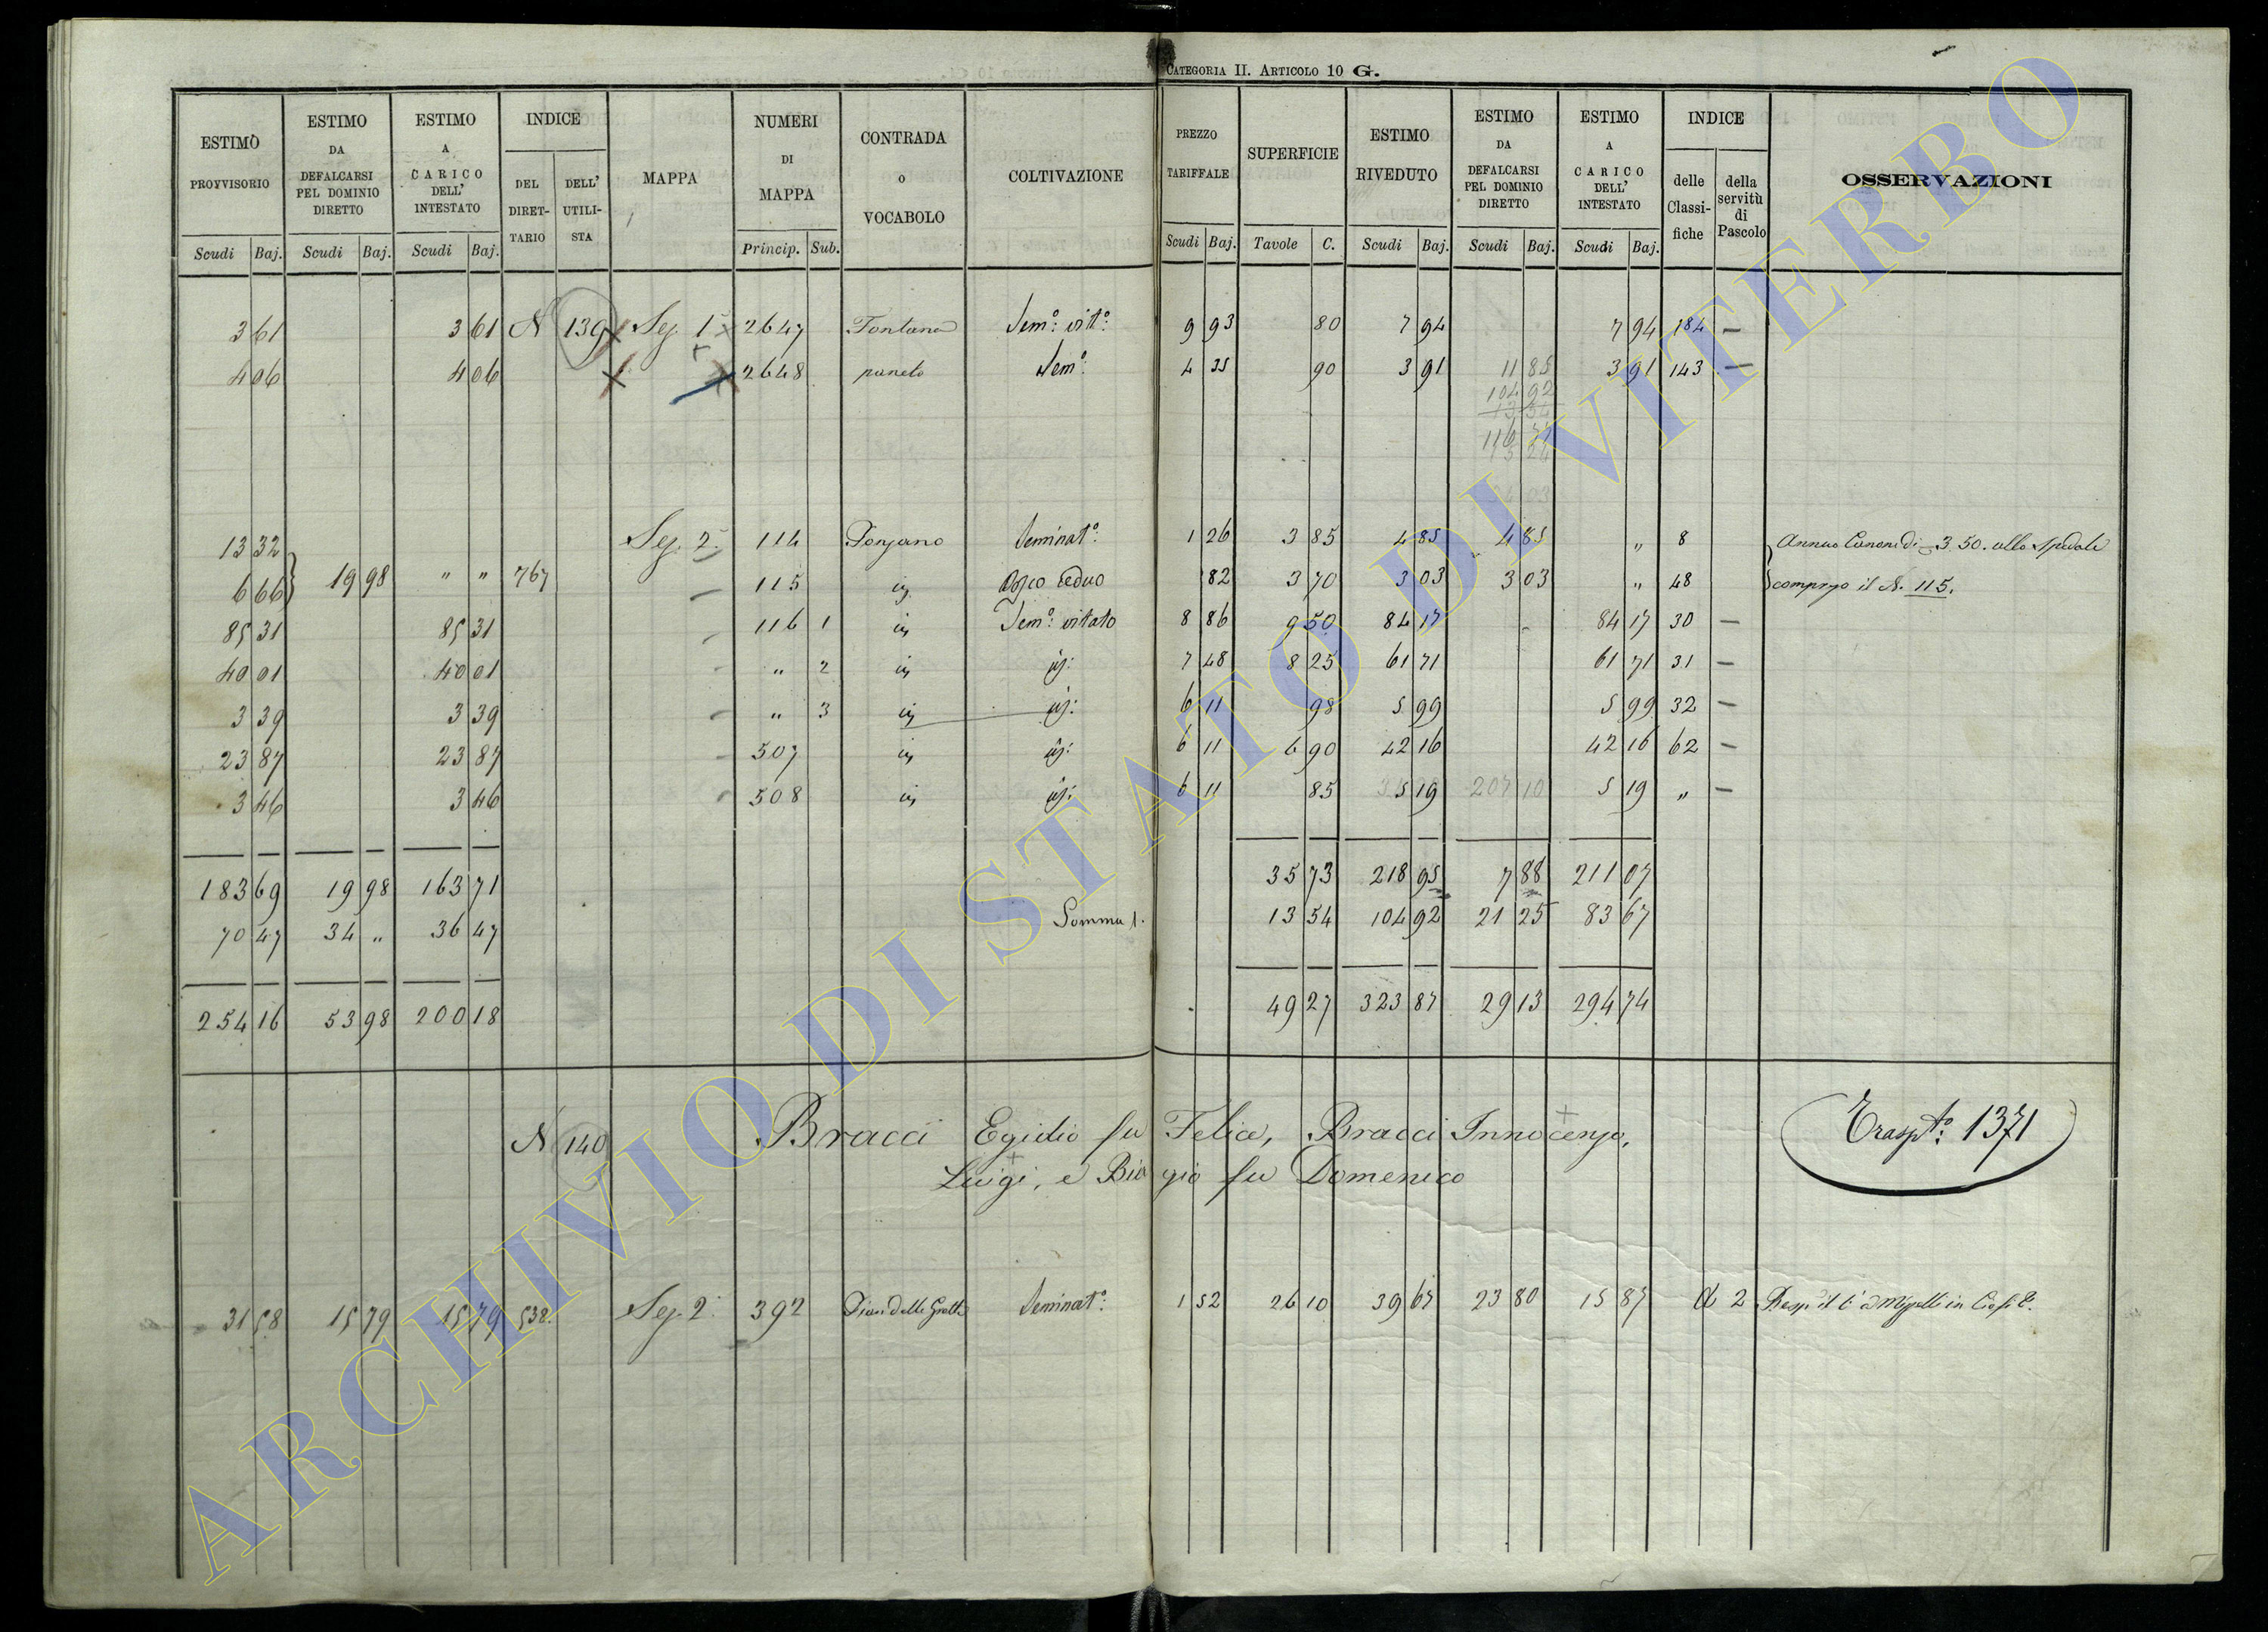 CATEGORIA II. ARTICOLO 10 G.
ESTIMO PROVVISORIO | ESTIMO DA DEFALCARSI PEL DOMINIO DIRETTO | ESTIMO A CARICO DELL' INTESTATO | INDICE | MAPPA | NUMERI DI MAPPA | CONTRADA O VOCABOLO | COLTIVAZIONE | PREZZO TARIFFALE | SUPERFICIE | ESTIMO RIVEDUTO | ESTIMO DA DEFALCARSI PEL DOMINIO DIRETTO | ESTIMO A CARICO DELL' INTESTATO | INDICE | OSSERVAZIONI
DEL DIRETTARIO | DELL' UTILISTA | delle Classifiche | della servitù di Pascolo
Scudi Baj. | Scudi Baj. | Scudi Baj. | Princip. Sub. | Scudi Baj. | Tavole C. | Scudi Baj. | Scudi Baj. | Scudi Baj.
3 61 3 61 N 139 Sez. 1 2647 Fontana Sem.º vit.º 9 93 80 7 94 7 94 184 —
4 06 4 06 2648 Sem.º 4 35 90 3 91 11 85 3 91 143 —
104 92
116 77
13 32 Sez. 2. 114 Seminat.º 1 26 3 85 4 85 4 85 „ 8 Annuo Canone di 3. 50. allo Spedale
6 66 19 98 „ „ 767 115 Bosco ceduo 82 3 70 3 03 3 03 „ 48 compreso il N. 115.
85 31 85 31 116 1 Sem.º vitato 8 86 9 50 84 17 84 17 30 —
40 01 40 01 „ 2 7 48 8 25 61 71 61 71 31 —
3 39 3 39 „ 3 6 11 98 5 99 5 99 32 —
23 87 23 87 507 6 11 6 90 42 16 42 16 62 —
3 46 3 46 508 6 11 85 5 19 207 10 5 19 „ —
183 69 19 98 163 71 35 73 218 95 7 88 211 07
70 47 34 „ 36 47 Somma 13 54 104 92 21 25 83 67
254 16 53 98 200 18 49 27 323 87 29 13 294 74
N 140 Bracci Egidio fu Felice, Bracci Innocenzo, Trasp.to: 1371
Luigi, e Biagio fu Domenico
31 58 15 79 15 79 532. Sez. 2. 392 Pian delle Grotte Seminat.º 1 52 26 10 39 67 23 80 15 87 2
ARCHIVIO DI STATO DI VITERBO